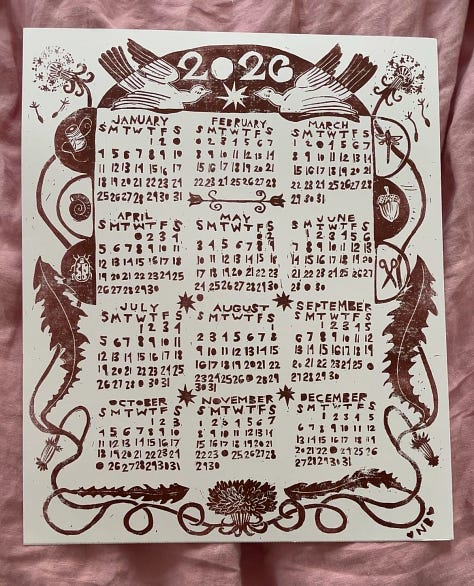 2026
JANUARY
S M T W T F S
1 2
4 5 6 7 8 9 10
11 12 13 14 15 16 17
18 19 20 21 22 23 24
25 26 27 28 29 30 31
FEBRUARY
S M T W T F S
2 3 4 5 6 7
8 9 10 11 12 13 14
15 16 17 18 19 20 21
22 23 24 25 26 27 28
MARCH
S M T W T F S
1 2 4 5 6 7
8 9 10 11 12 13 14
15 16 17 18 19 20 21
22 23 24 25 26 27 28
29 30 31
APRIL
S M T W T F S
2 3 4
5 6 7 8 9 10 11
12 13 14 15 16 17 18
19 20 21 22 23 24 25
26 27 28 29 30
MAY
S M T W T F S
2
3 4 5 6 7 8 9
10 11 12 13 14 15 16
17 18 19 20 21 22 23
24 25 26 27 28 29 30
JUNE
S M T W T F S
1 2 3 4 5 6
7 8 9 10 11 12 13
14 15 16 17 18 19 20
21 22 23 24 25 26 27
28 30
JULY
S M T W T F S
1 2 3 4
5 6 7 8 9 10 11
12 13 14 15 16 17 18
19 20 21 22 23 24 25
26 27 28 30 31
AUGUST
S M T W T F S
1
2 3 4 5 6 7 8
9 10 11 12 13 14 15
16 17 18 19 20 21 22
23 24 25 26 28 29
30 31
SEPTEMBER
S M T W T F S
1 2 3 4 5
6 7 8 9 10 11 12
13 14 15 16 17 18 19
20 21 22 23 24 25
27 28 29 30
OCTOBER
S M T W T F S
1 2 3
4 5 6 7 8 9 10
11 12 13 14 15 16 17
18 19 20 21 22 23 24
26 27 28 29 30 31
NOVEMBER
S M T W T F S
1 2 3 4 5 6 7
8 9 10 11 12 13 14
15 16 17 18 19 20 21
22 23 25 26 27 28
29 30
DECEMBER
S M T W T F S
1 2 3 4 5
6 7 8 9 10 11 12
13 14 15 16 17 18 19
20 21 22 24 25 26
27 28 29 30 31